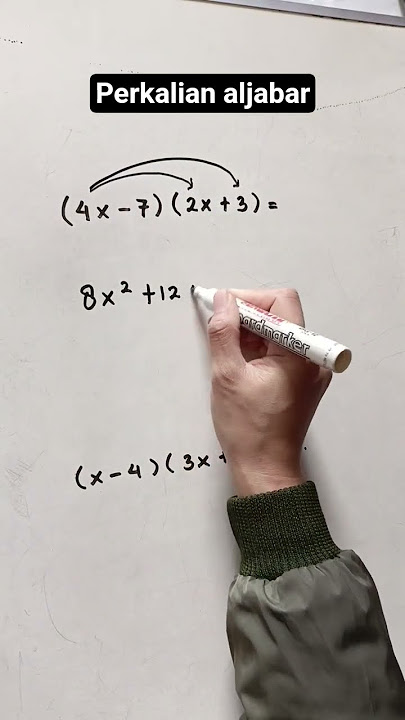 Perkalian aljabar
(4x-7)(2x+3)=
8x² +12
boardmarker
(x-4)(3x +